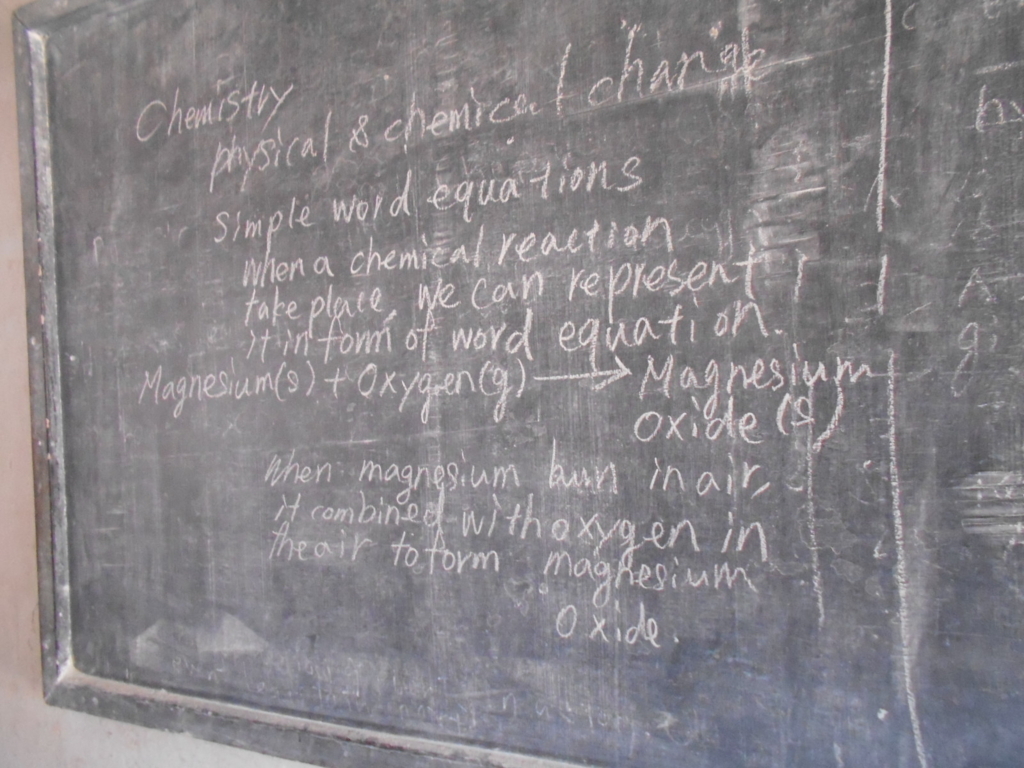 Chemistry
physical & chemical change
simple word equations
when a chemical reaction
take place, we can represent
it in form of word equation.
Magnesium(s) + Oxygen(g) → Magnesium
oxide (s)
When magnesium burn in air,
it combined with oxygen in
the air to form magnesium
oxide.